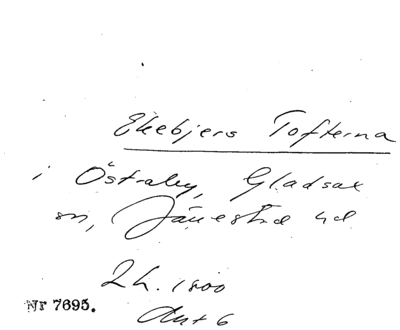 Ekebjers Tofterna
i Östraby, Gladsax
sn, Järrestad hd
2 h. 1800
Akt 6
Nr 7695.